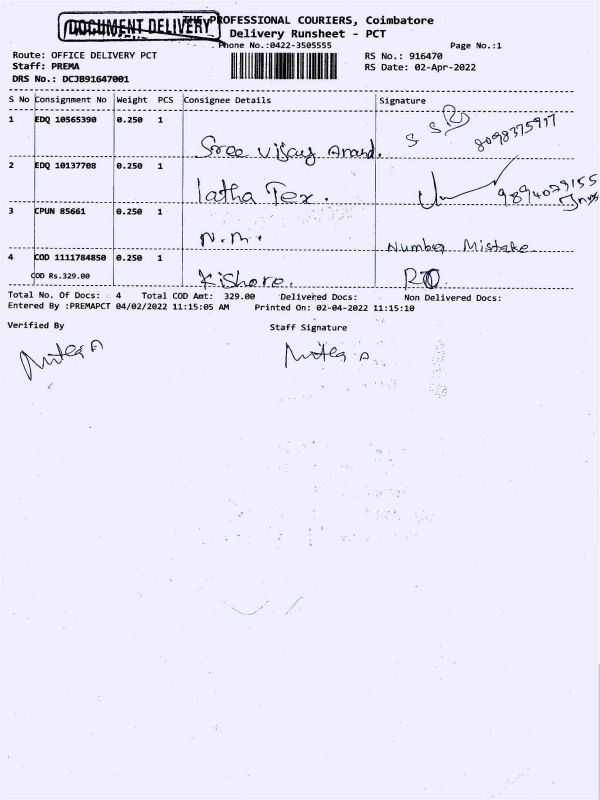 DOCUMENT DELIVERY
THE PROFESSIONAL COURIERS, Coimbatore
Delivery Runsheet - PCT
Phone No.:0422-3505555
Page No.:1
Route: OFFICE DELIVERY PCT
RS No.: 916470
Staff: PREMA
RS Date: 02-Apr-2022
DRS No.: DCJB91647001
S No Consignment No Weight PCS Consignee Details Signature
1 EDQ 10565390 0.250 1
Sree Vijay Anand. 8098375917
2 EDQ 10137708 0.250 1
latha Tex. 9894029155
3 CPUN 85661 0.250 1
N.M. Number Mistake
4 COD 1111784850 0.250 1
COD Rs.329.00 Kishore. RTO
Total No. Of Docs: 4 Total COD Amt: 329.00 Delivered Docs: Non Delivered Docs:
Entered By :PREMAPCT 04/02/2022 11:15:05 AM Printed On: 02-04-2022 11:15:10
Verified By Staff Signature